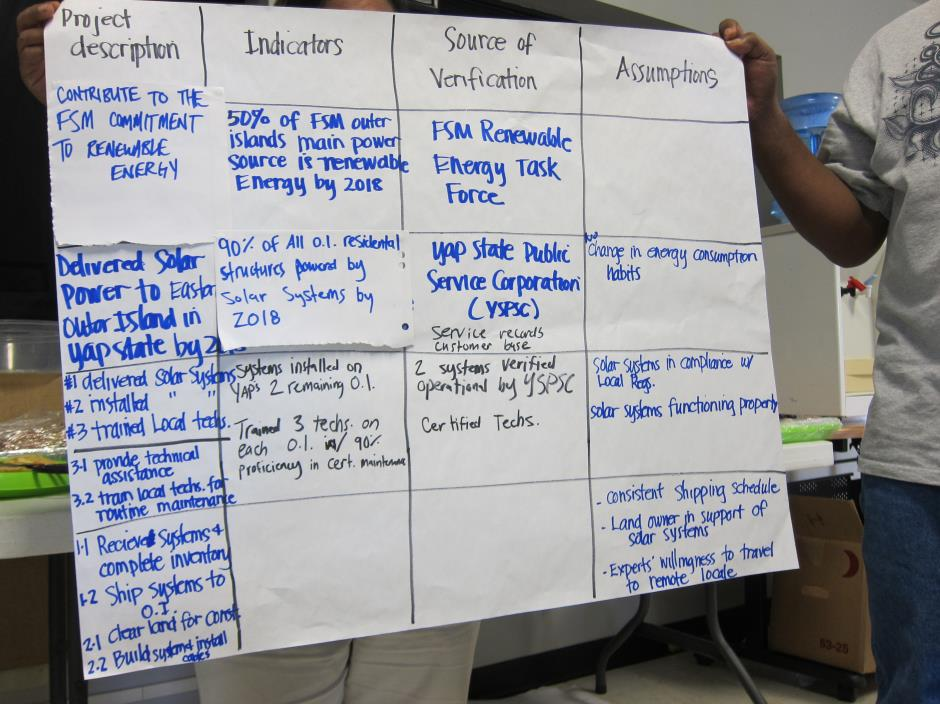 Project
description
Indicators
Source of
Verification
Assumptions
CONTRIBUTE TO THE
FSM COMMITMENT
TO RENEWABLE
ENERGY
50% of FSM outer
islands main power
source is renewable
Energy by 2018
FSM Renewable
Energy Task
Force
Delivered Solar
Power to Easter
Outer Island in
Yap state by
90% of All O.I. residental
structures powered by
Solar Systems by
2018
Yap State Public
Service Corporation
(YSPSC)
Service records
Customer base
No
Change in energy consumption
habits
#1 delivered Solar Systems
#2 installed " "
#3 trained Local techs.
Systems installed on
YAPs 2 remaining O.I.
Trained 3 techs. on
each O.I. w/ 90%
proficiency in cert. maintenance
2 systems verified
operational by YSPSC
Certified Techs.
Solar Systems in compliance w/
Local Regs.
solar systems functioning property
3.1 provide technical
assistance
3.2 train local techs. for
routine maintenance
1.1 Recieved Systems &
complete inventory
1.2 Ship Systems to
O.I.
2.1 Clear land for const.
2.2 Build system & install
- Consistent Shipping schedule
- Land owner in support of
solar systems
- Experts' willingness to travel
to remote locale
53-25